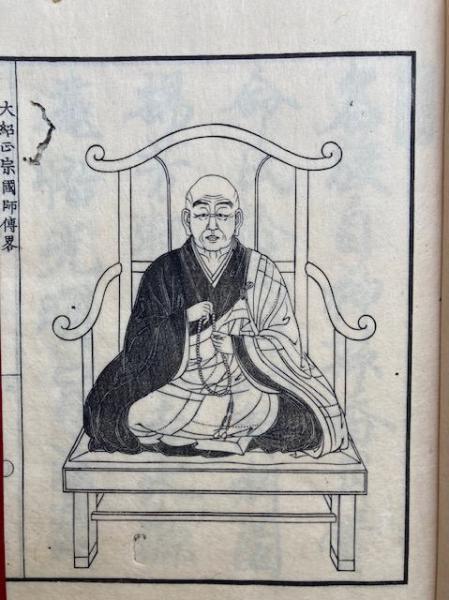 大紹正宗國師傳畧